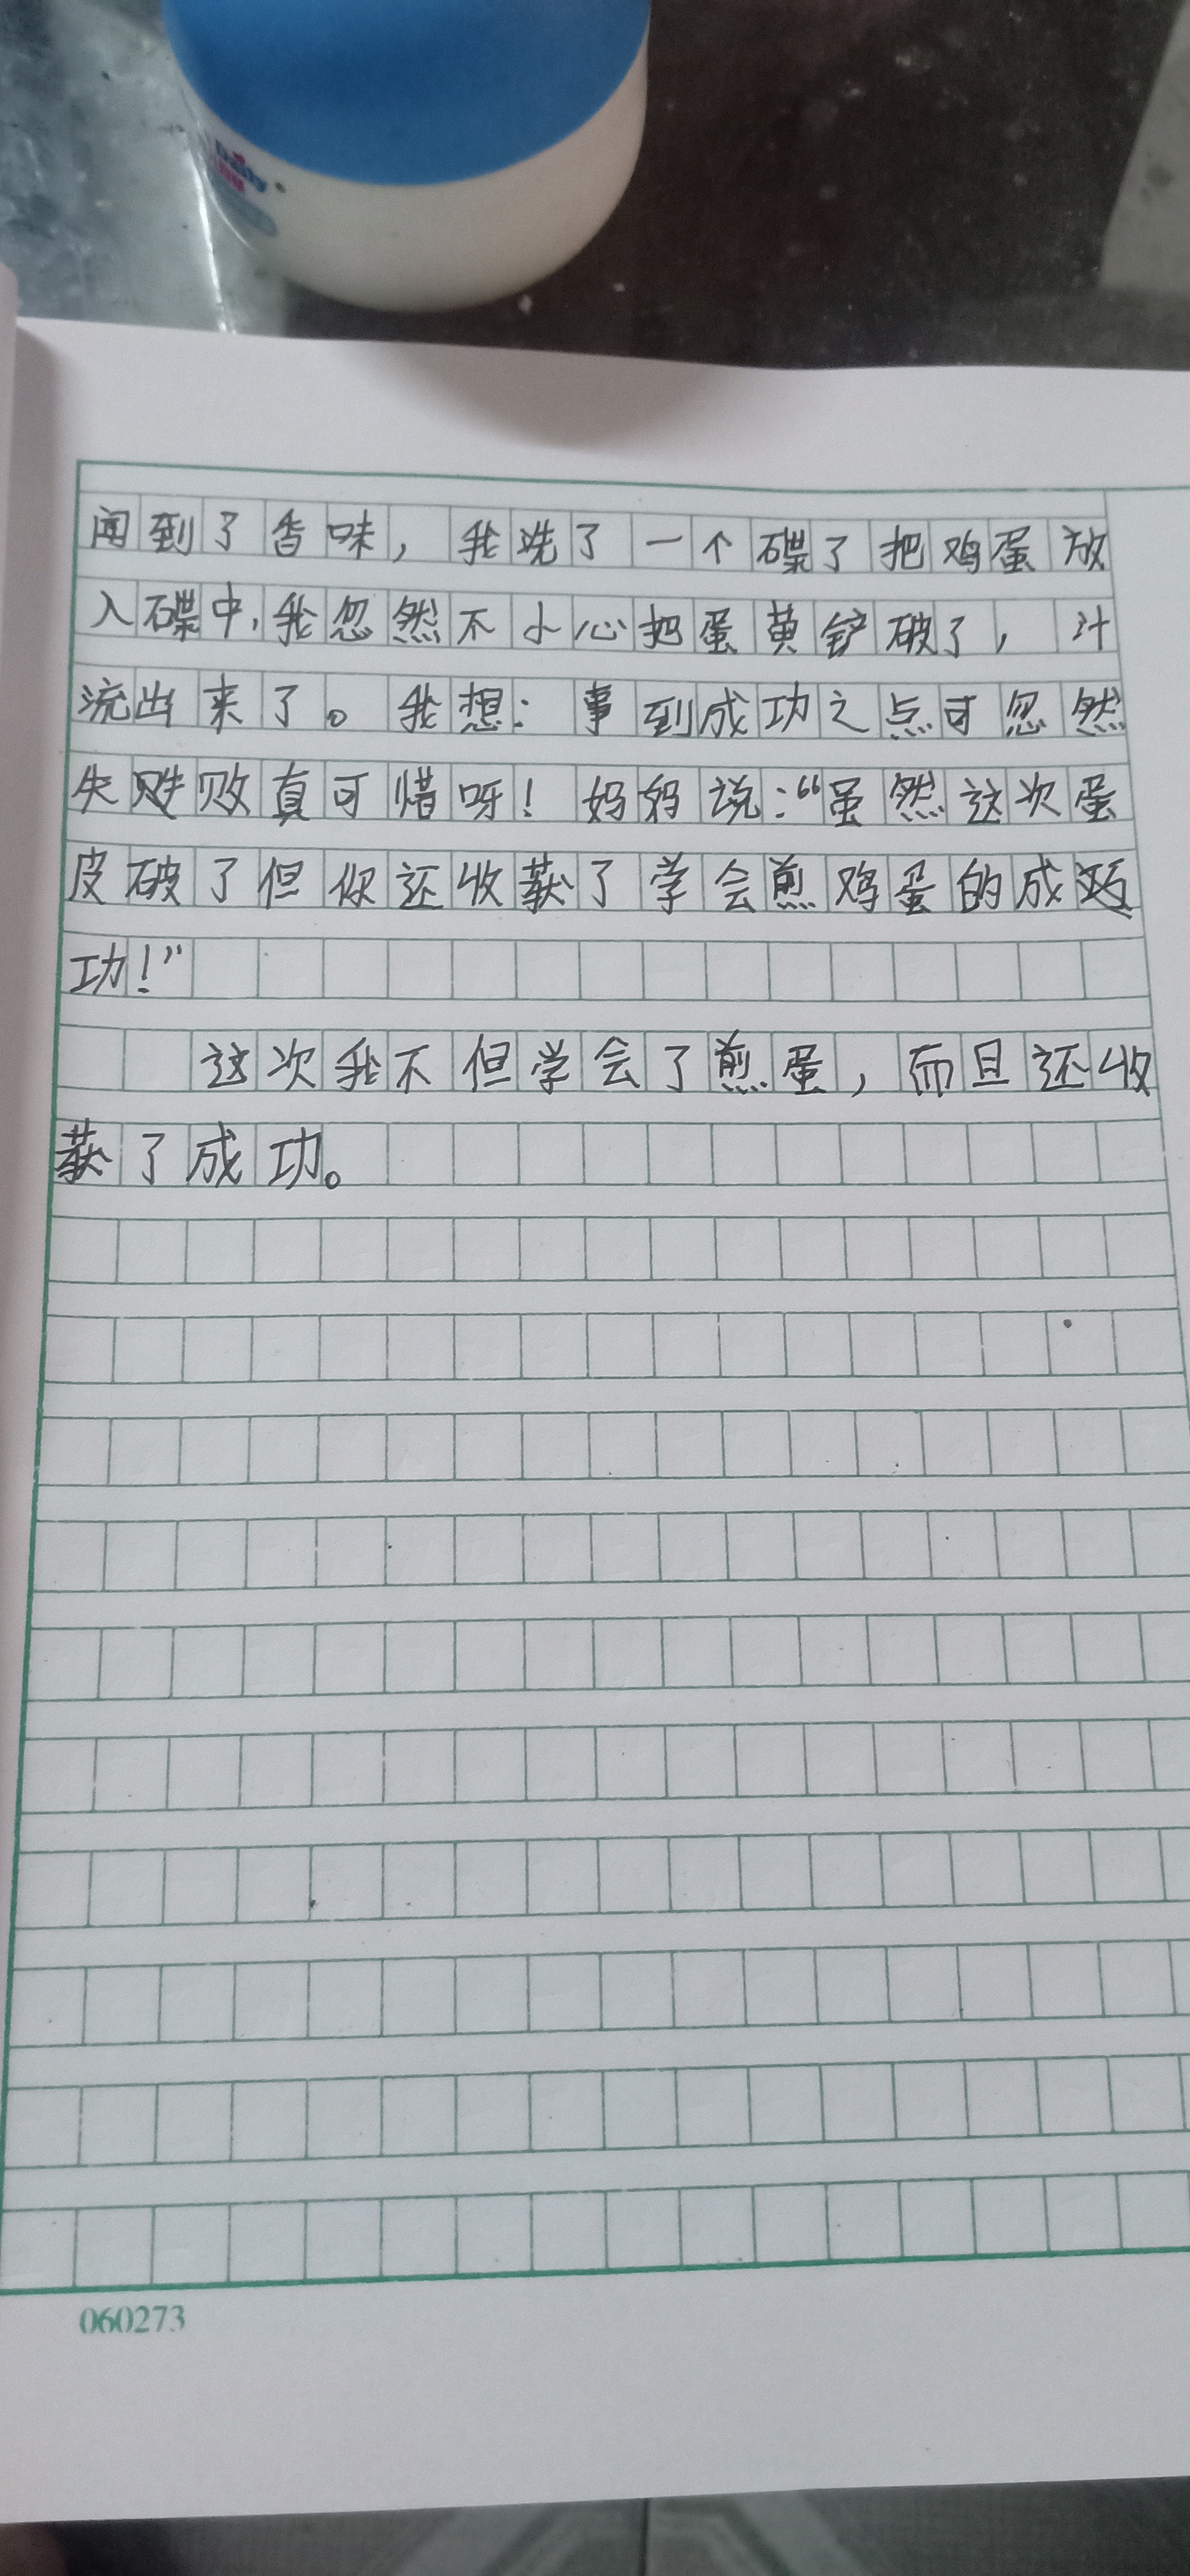 Daisy
闻到了香味，我洗了一个碟了把鸡蛋放
入碟中,我忽然不小心把蛋黄铲破了，汁
流出来了。我想：事到成功之点可忽然
失败真可惜呀！妈妈说：“虽然这次蛋
皮破了但你还收获了学会煎鸡蛋的成
功！”
这次我不但学会了煎蛋，而且还收
获了成功。
060273